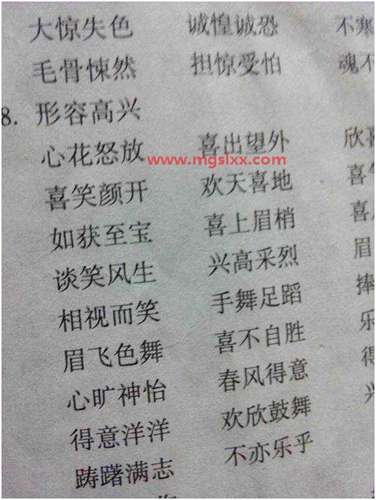 大惊失色 诚惶诚恐 不寒
毛骨悚然 担惊受怕 魂不
8. 形容高兴
心花怒放 喜出望外 欣喜
www.mgslxx.com
喜笑颜开 欢天喜地 喜
如获至宝 喜上眉梢 喜
谈笑风生 兴高采烈 眉
相视而笑 手舞足蹈 捧
眉飞色舞 喜不自胜 乐
心旷神怡 春风得意 得
得意洋洋 欢欣鼓舞
踌躇满志 不亦乐乎